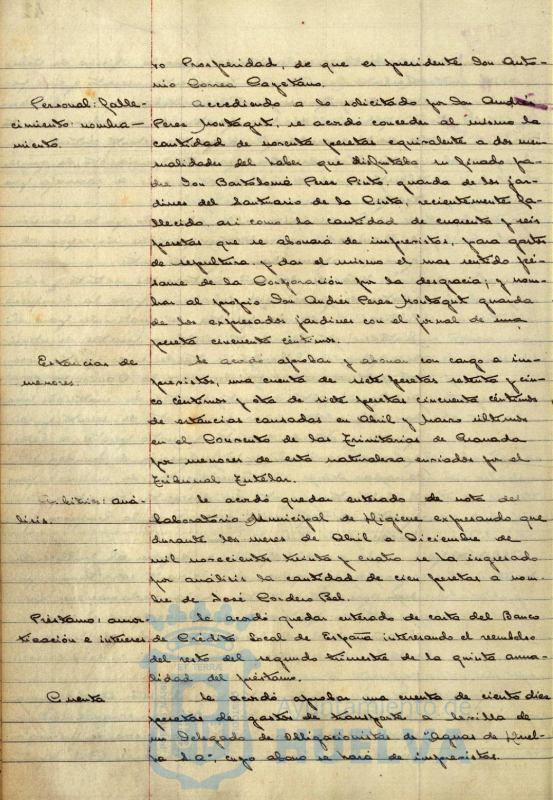 ro Prosperidad, de que es presidente Don Anto-
nio Correa Cayetano.
Personal: falle-
cimiento: nombra-
miento.
Accediendo a lo solicitado por Don Andrés
Perez Montagut, se acordó conceder al mismo la
cantidad de noventa pesetas equivalente a dos men-
sualidades del haber que disfrutaba su finado pa-
dre Don Bartolomé Perez Pinto, guarda de los jar-
dines del Santuario de la Cinta, recientemente fa-
llecido, así como la cantidad de cuarenta y seis
pesetas que se abonará de imprevistos, para gastos
de sepultura, y dar el mismo el mas sentido pé-
same de la Corporación por la desgracia; y nom-
brar al propio Don Andrés Perez Montagut guarda
de los expresados jardines con el jornal de una
peseta cincuenta céntimos.
Estancias de
menores.
Se acordó aprobar y abonar con cargo a im-
previstos, una cuenta de siete pesetas setenta y cin-
co céntimos y otra de siete pesetas cincuenta céntimos,
de estancias causadas en Abril y Marzo últimos
en el Convento de las Trinitarias de Granada
por menores de esta naturaleza enviados por el
Tribunal Tutelar.
Arbitrios: aná-
lisis.
Se acordó quedar enterado de nota del
Laboratorio Municipal de Higiene expresando que
durante los meses de Abril a Diciembre de
mil novecientos treinta y cuatro se ha ingresado
por análisis la cantidad de cien pesetas a nom-
bre de José Cordero Bel.
Préstamo: amor-
tización e intereses
Se acordó quedar enterado de carta del Banco
de Crédito Local de España interesando el reembolso
del resto del segundo trimestre de la quinta anua-
lidad del préstamo.
Cuenta
Se acordó aprobar una cuenta de ciento diez
pesetas de gastos de transporte a Sevilla de
un Delegado de Obligacionistas de "Aguas de Huel-
va S.A." cuyo abono se hará de imprevistos.
Ayuntamiento de
HUELVA